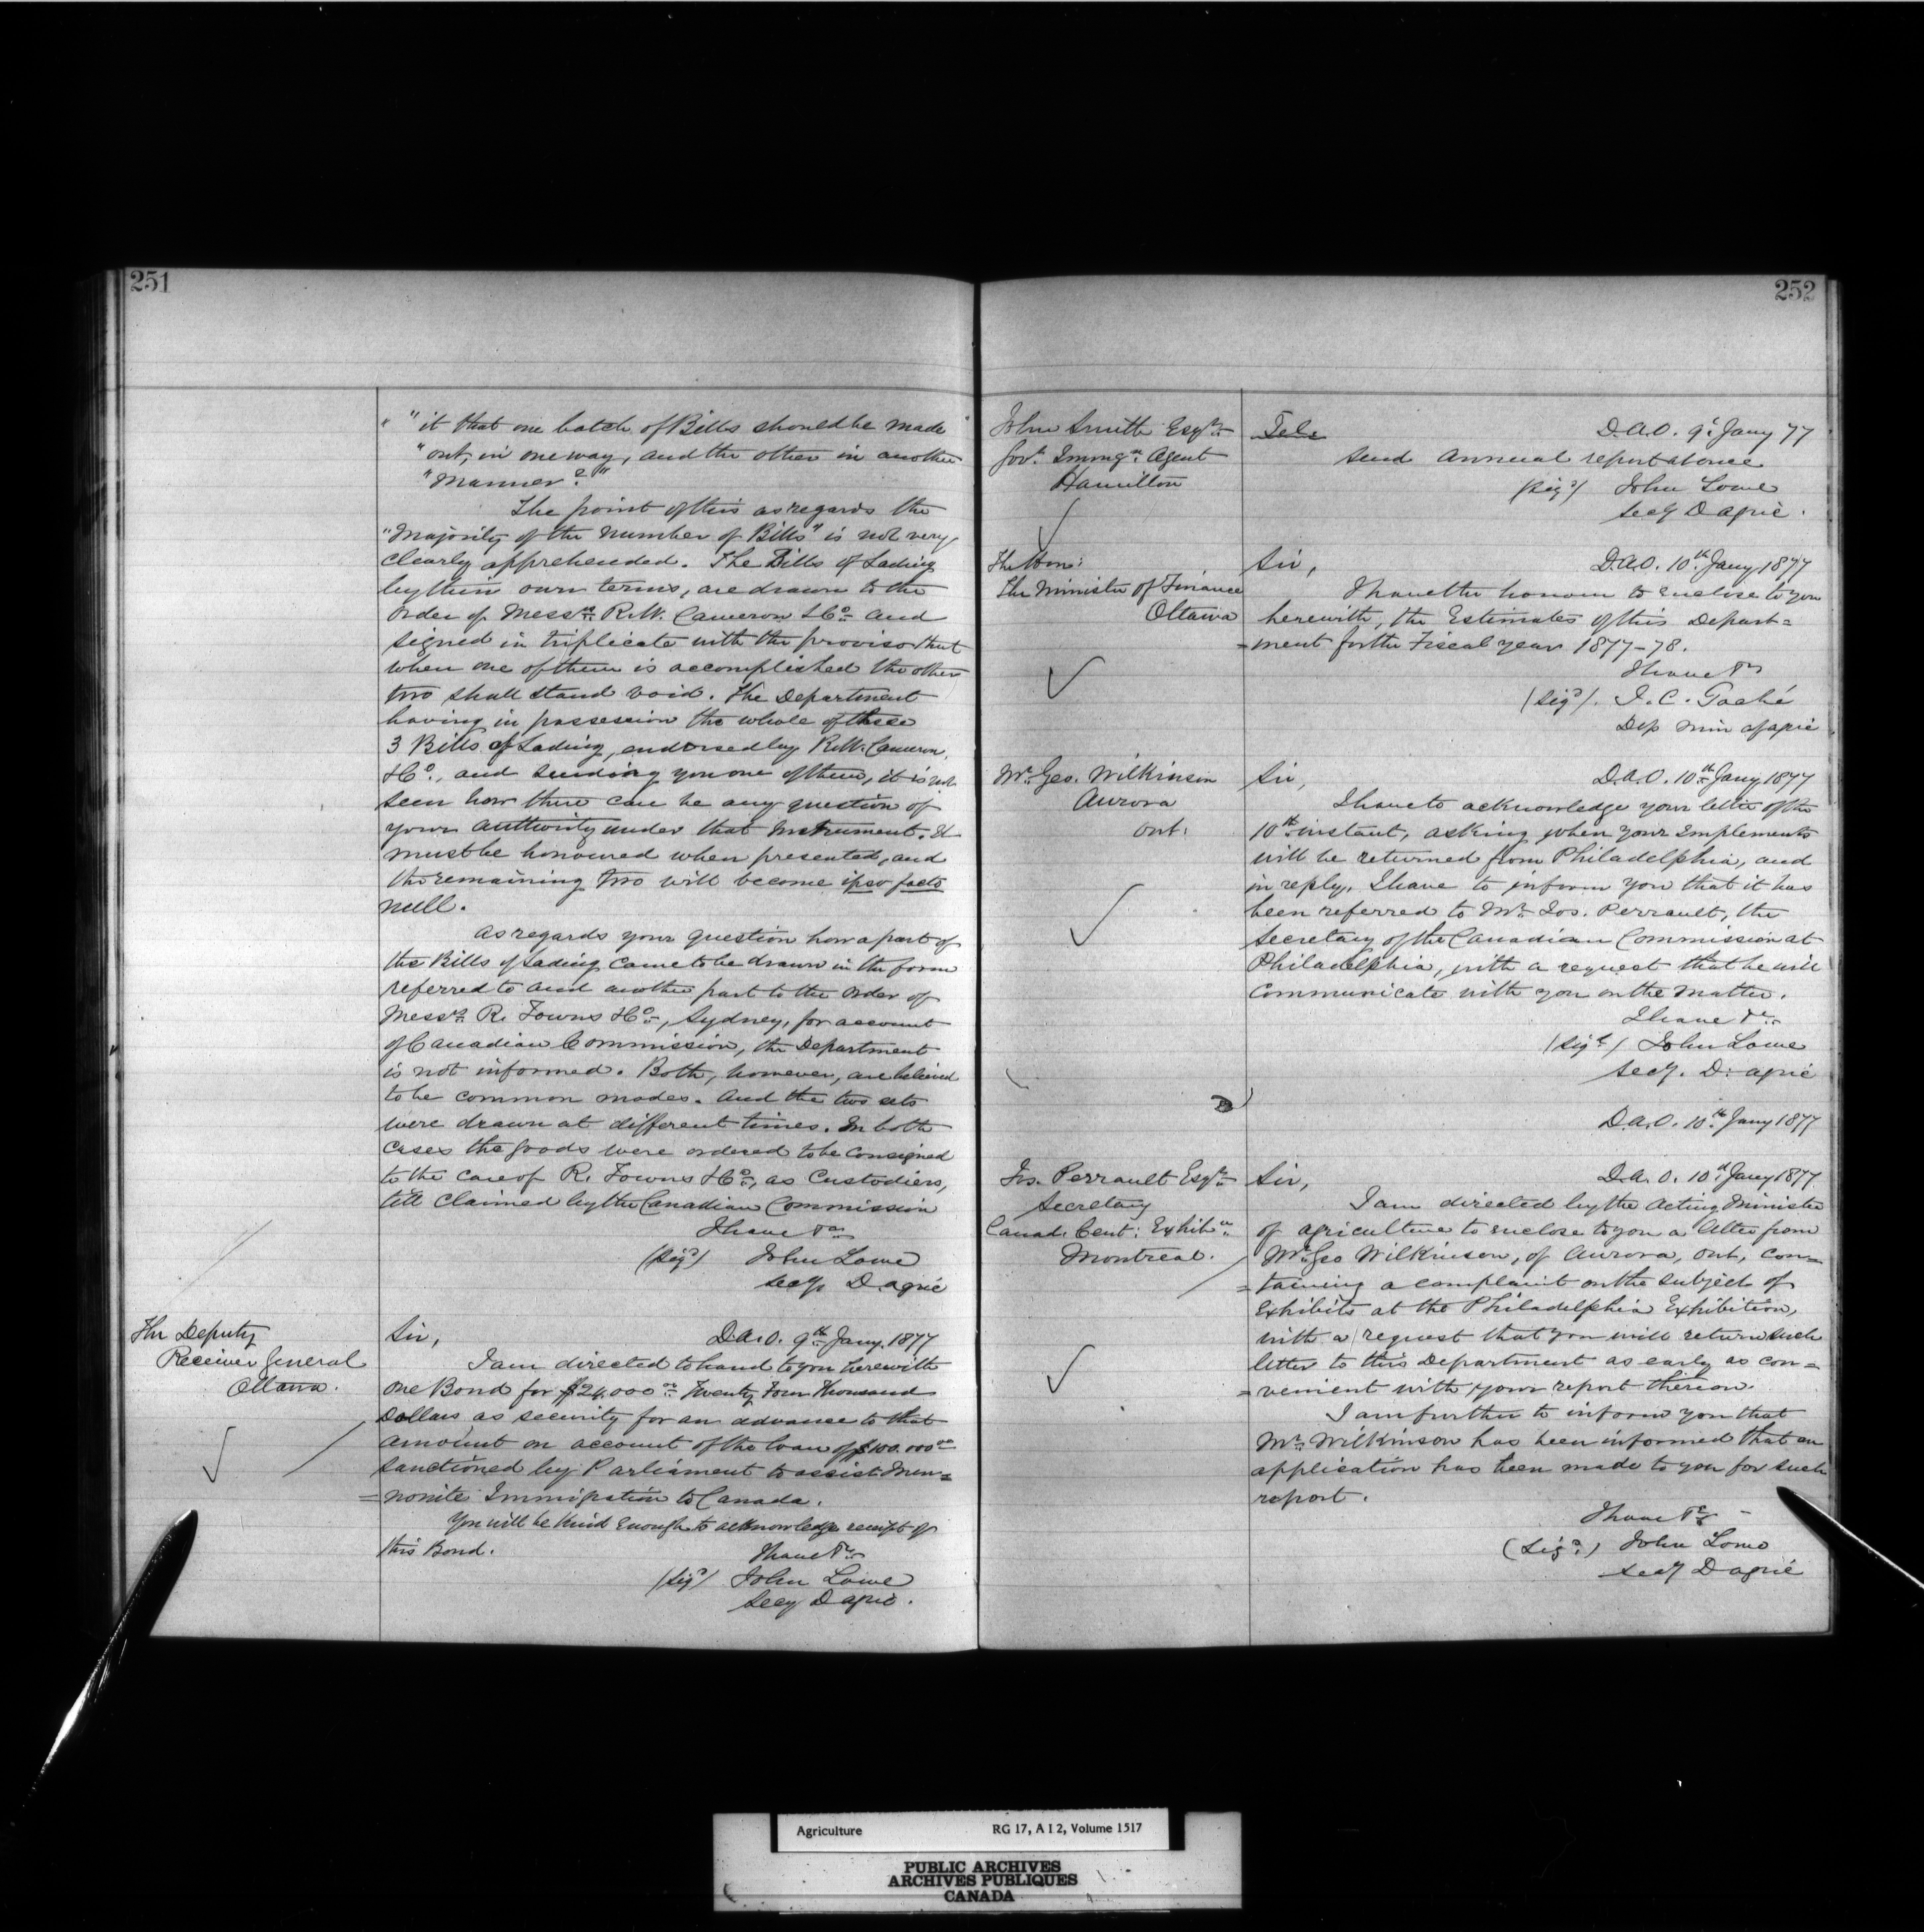 251
" "it that one batch of Bills should be made
"out, in one way, and the other in another
"manner?"
The point of this as regards the
"Majority of the number of Bills" is not very
clearly apprehended. The Bills of Lading
by their own terms, are drawn to the
order of Messrs. R.W. Cameron & Co. and
signed in triplicate with the proviso that
when one of them is accomplished the other
two shall stand void. The Department
having in possession the whole of these
3 Bills of Lading, endorsed by R.W. Cameron
& Co., and sending you one of them, it is not
seen how there can be any question of
your authority under that Instrument. It
must be honoured when presented, and
the remaining two will become ipso facto
null.
As regards your question how a part of
the Bills of Lading came to be drawn in the form
referred to and another part to the order of
Messrs. R. Towns & Co., Sydney, for account
of Canadian Commission, the Department
is not informed. Both, however, are believed
to be common modes. And the two sets
were drawn at different times. In both
cases the goods were ordered to be consigned
to the care of R. Towns & Co., as Custodiers,
till claimed by the Canadian Commission
I have &c
(Sigd) John Lowe
Secy D. Agric
The Deputy
Receiver General
Ottawa.
Sir, D.A.O. 9th Jany. 1877
I am directed to hand to you herewith
one Bond for $24,000 00 Twenty Four Thousand
Dollars as security for an advance to that
amount on account of the loan of $100.000 00
sanctioned by Parliament to assist Men=
=nonite Immigration to Canada.
You will be kind enough to acknowledge receipt of
this Bond.
I have &c
(Sigd) John Lowe
Secy D Agric.
252
John Smith Esqre
Govt. Immign. Agent
Hamilton
Tel: D.A.O. 9th Jany 77
Send Annual report at once
(Sigd) John Lowe
Secy D Agric.
The Hon:
The Minister of Finance
Ottawa
Sir, D.A.O. 10th Jany 1877
I have the honour to enclose to you
herewith, the Estimates of this Depart=
=ment for the Fiscal year 1877-78.
I have &c
(Sigd). J. C. Taché
Dep Min of Agric
Mr. Geo. Wilkinson
Aurora
Ont:
Sir, D.A.O. 10th Jany 1877
I have to acknowledge your letter of the
10th instant, asking when your Implements
will be returned from Philadelphia, and
in reply, I have to inform you that it has
been referred to Mr. Jos. Perrault, the
Secretary of the Canadian Commission at
Philadelphia, with a request that he will
communicate with you on the matter.
I have &c
(Sigd) John Lowe
Secy. D. Agric
D.A.O. 10th Jany 1877
Jos. Perrault Esqre
Secretary
Canad. Cent: Exhibn
Montreal.
Sir, D.A.O. 10th Jany 1877
I am directed by the Acting Minister
of Agriculture to enclose to you a letter from
Mr. Geo Wilkinson, of Aurora, Ont, con=
=taining a complaint on the subject of
Exhibits at the Philadelphia Exhibition,
with a request that you will return such
letter to this Department as early as con=
=venient with your report thereon.
I am further to inform you that
Mr. Wilkinson has been informed that an
application has been made to you for such
report.
I have &c
(Sigd) John Lowe
Secy D Agric
Agriculture RG 17, A I 2, Volume 1517
PUBLIC ARCHIVES
ARCHIVES PUBLIQUES
CANADA